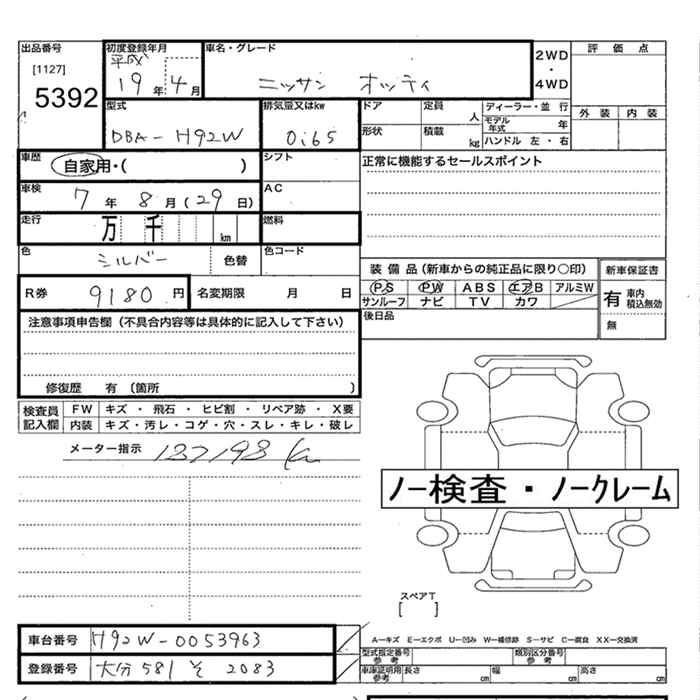 出品番号
[1127]
5392
初度登録年月
平成
19 年 4 月
車名・グレード
ニッサン オッティ
2WD
・
4WD
評 価 点
外 装 内 装
型式
DBA-H92W
排気量又はkw
0.65
ドア
定員
人
形状
積載
kg
ディーラー・並 行
モデル年式 年
ハンドル 左・右
車歴
自家用・( )
シフト
正常に機能するセールスポイント
車検
7 年 8 月 ( 29 日)
AC
走行
万 千 km
燃料
色
シルバー
色替
色コード
装 備 品 (新車からの純正品に限り○印)
新車保証書
PS PW ABS エアB アルミW
サンルーフ ナビ TV カワ
有 車内積込無効
無
R券
9180 円
名変期限 月 日
後日品
注意事項申告欄 (不具合内容等は具体的に記入して下さい)
修復歴 有 (箇所 )
検査員記入欄
FW キズ ・ 飛石 ・ ヒビ割 ・ リペア跡 ・ X要
内装 キズ・汚レ・コゲ・穴・スレ・キレ・破レ
メーター指示
137198 km
ノー検査・ノークレーム
スペアT
[ ]
車台番号
H92W-0053963
登録番号
大分 581 そ 2083
A-キズ E-エクボ U-凹み W-補修跡 S-サビ C-腐食 XX-交換済
型式指定番号
参 考
類別区分番号
参 考
車庫証明用
参考
長さ cm 幅 cm 高さ cm